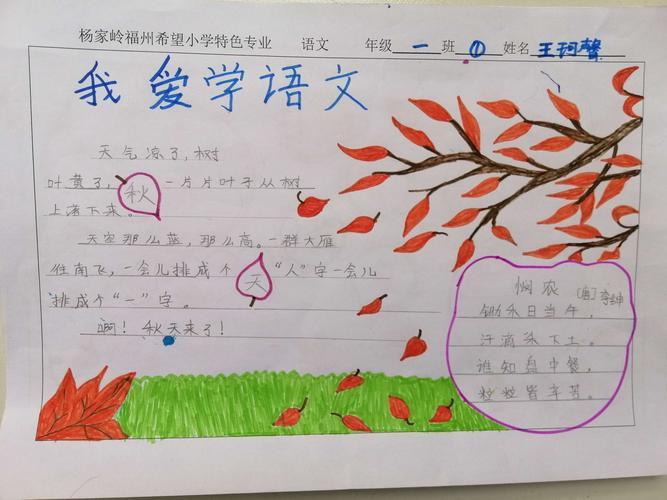 杨家岭福州希望小学特色专业 语文 年级 一 班 ① 姓名 王珂馨
我爱学语文
天气凉了,树
叶黄了,秋一片片叶子从树
上落下来。
天空那么蓝,那么高。一群大雁
往南飞,一会儿排成个天“人”字一会儿
排成个“一”字。
啊!秋天来了!
悯农
[唐]李绅
锄禾日当午,
汗滴禾下土。
谁知盘中餐,
粒粒皆辛苦。